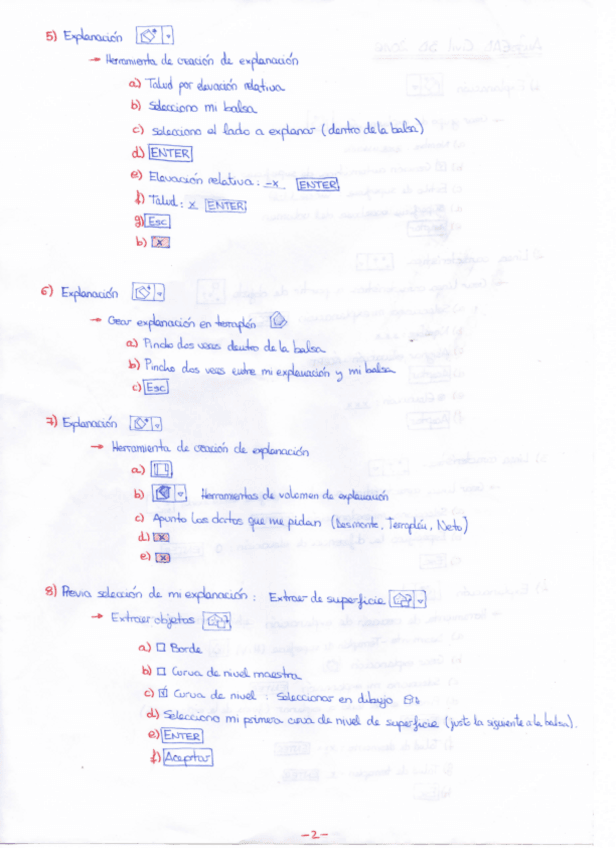 5) Explanación
→ Herramienta de creación de explanación
a) Talud por elevación relativa
b) Selecciono mi balsa
c) Selecciono el lado a explanar (dentro de la balsa)
d) ENTER
e) Elevación relativa: -x ENTER
f) Talud: x ENTER
g) Esc
h) x
6) Explanación
→ Crear explanación en terraplén
a) Pincho dos veces dentro de la balsa
b) Pincho dos veces entre mi explanación y mi balsa
c) Esc
7) Explanación
→ Herramienta de creación de explanación
a)
b) Herramientas de volumen de explanación
c) Apunto los datos que me pidan (Desmonte, Terraplén, Neto)
d) x
e) x
8) Previa selección de mi explanación: Extraer de superficie
→ Extraer objetos
a) Borde
b) Curva de nivel maestra
c) Curva de nivel: Seleccionar en dibujo
d) Selecciono mi primera curva de nivel de superficie (justo la siguiente a la balsa).
e) ENTER
f) Aceptar
-2-